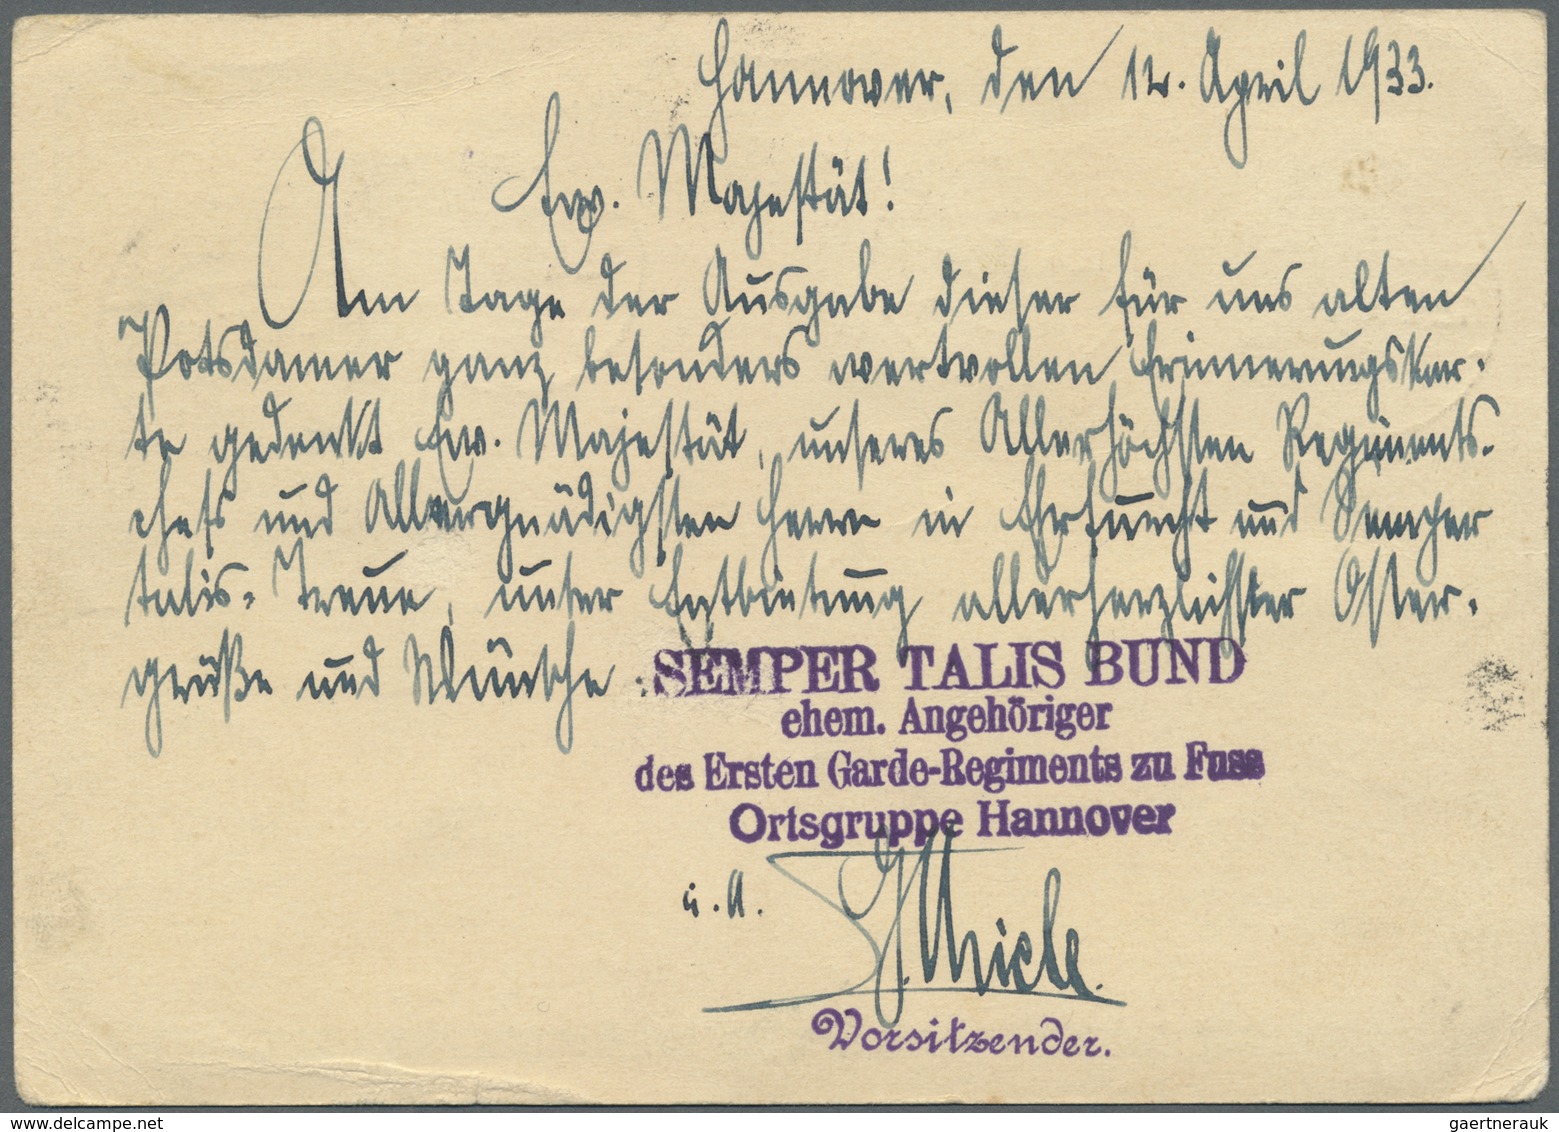 Hannover, den 12. April 1933.
Ew. Majestät!
Am Tage der Ausgabe dieser für uns alten
Potsdamer ganz besonders wertvollen Erinnerungskar-
te gedenkt Ew. Majestät, unseres Allerhöchsten Regiments-
chefs und Allergnädigsten Herrn in Ehrfurcht und Semper
talis-Treue, unter Entbietung allerherzlichster Oster-
grüße und Wünsche
SEMPER TALIS BUND
ehem. Angehöriger
des Ersten Garde-Regiments zu Fuss
Ortsgruppe Hannover
i.A.
Thiele.
Vorsitzender.
gaertnerauk